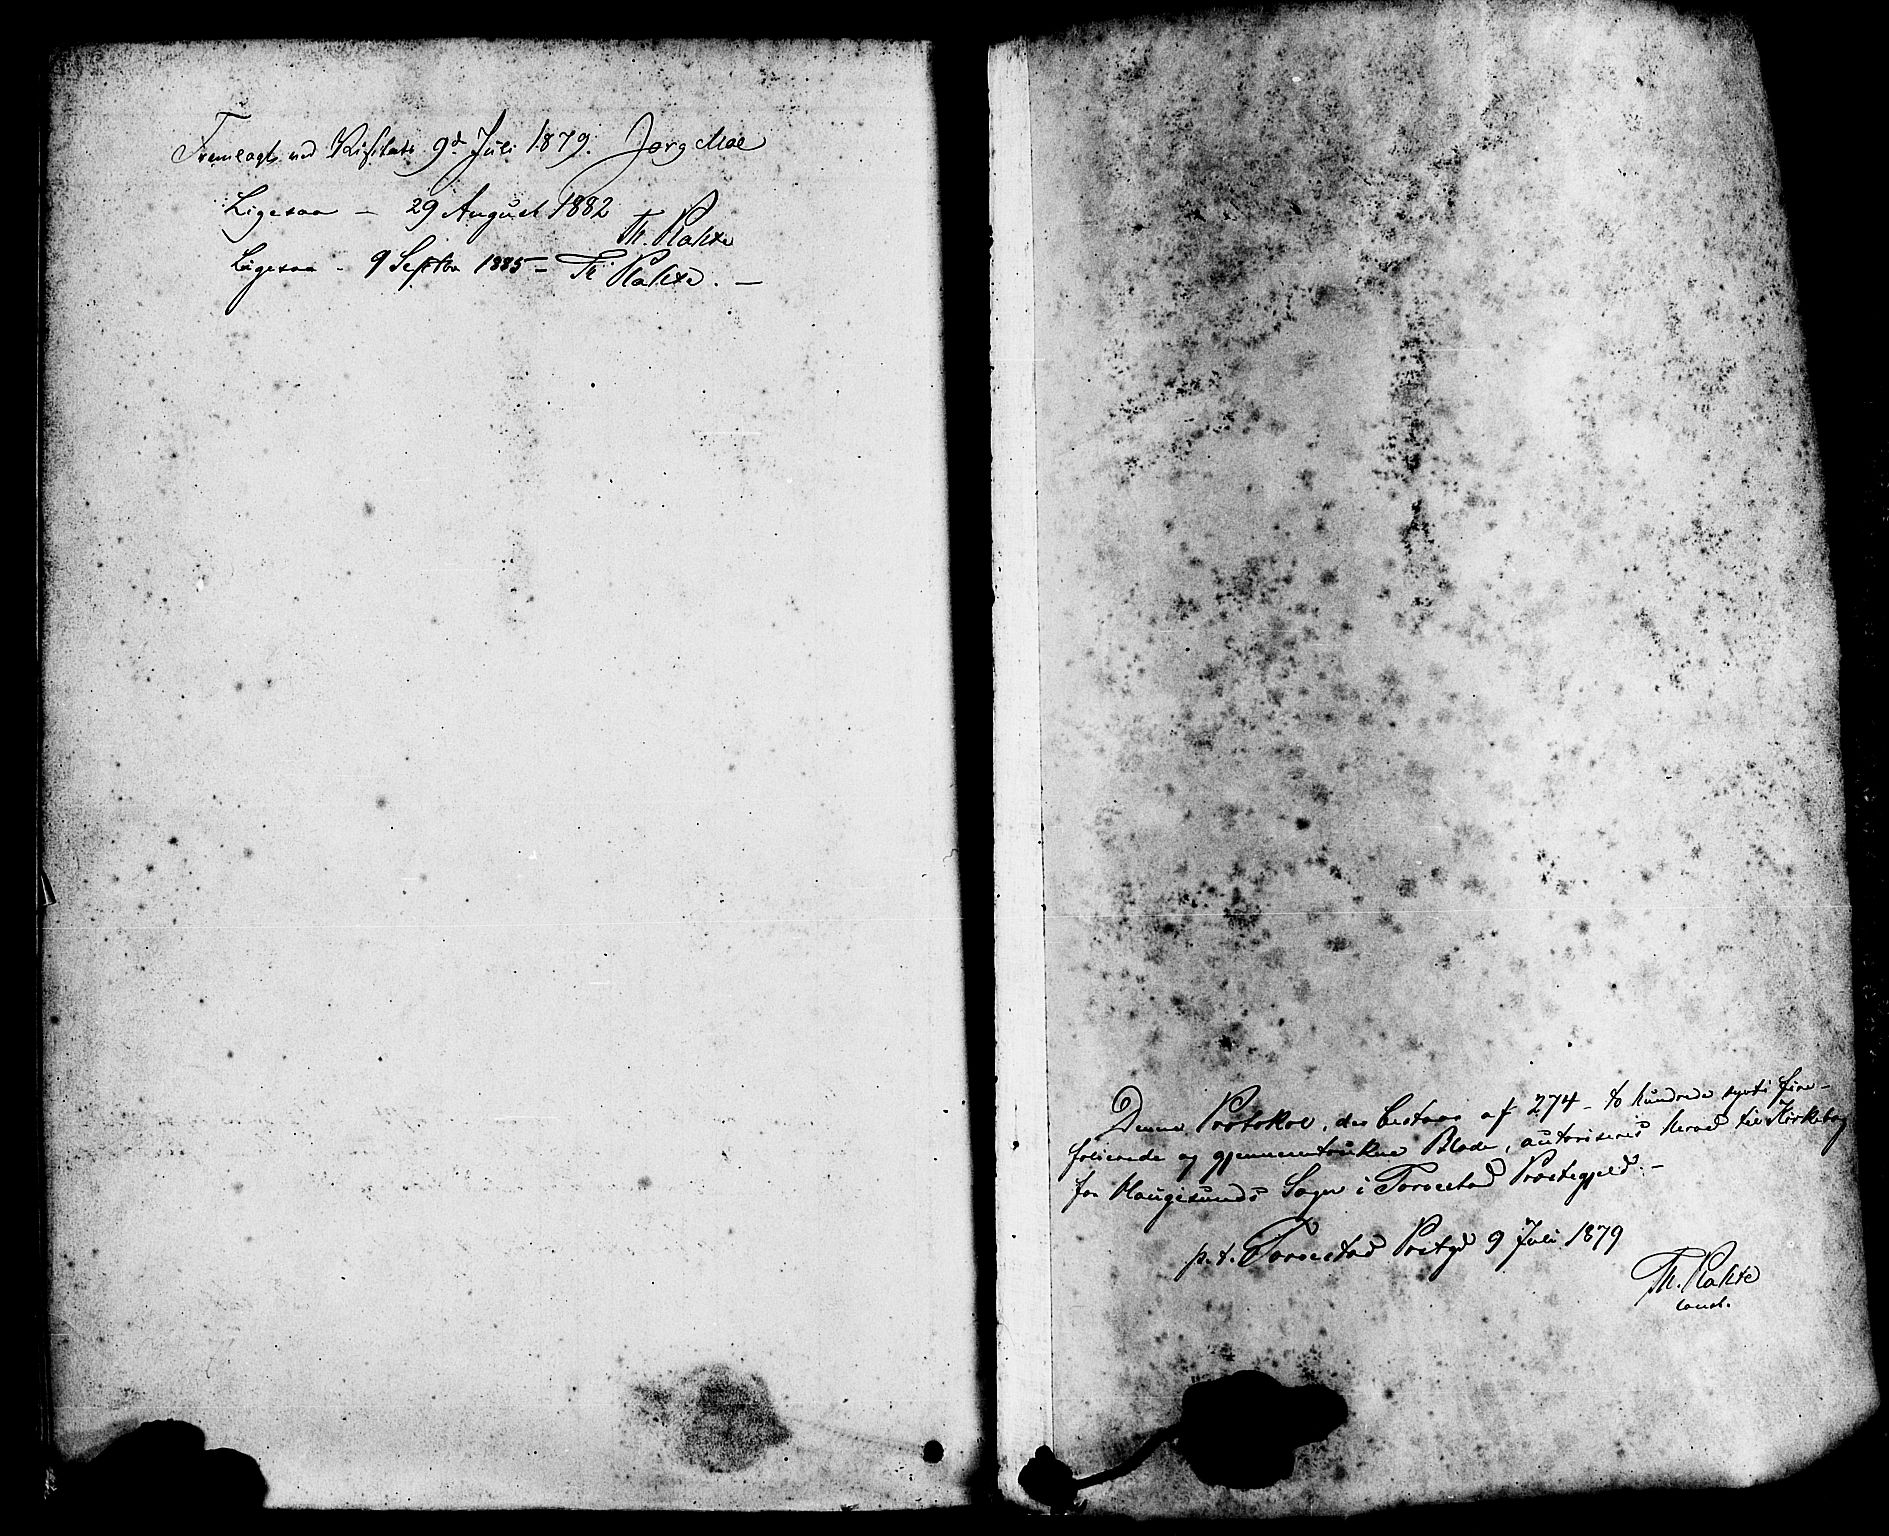 Fremlagt ved Visitats 9d Juli 1879. Jørg Moe
Ligesaa – 29 August 1882
Th. Rakte
Ligesaa – 9 Septbr 1885 – Th Rakte. –
Denne Protokol, der bestaar af 274 – to hundrede sytti fire –
folierede og gjennemtrukne Blade, autoriseres herved til Kirkebog
for Haugesunds Sogn i Torvestad Præstegjeld. –
p.t. Torvestad Prstgd 9 Juli 1879
Th. Rakte
const.